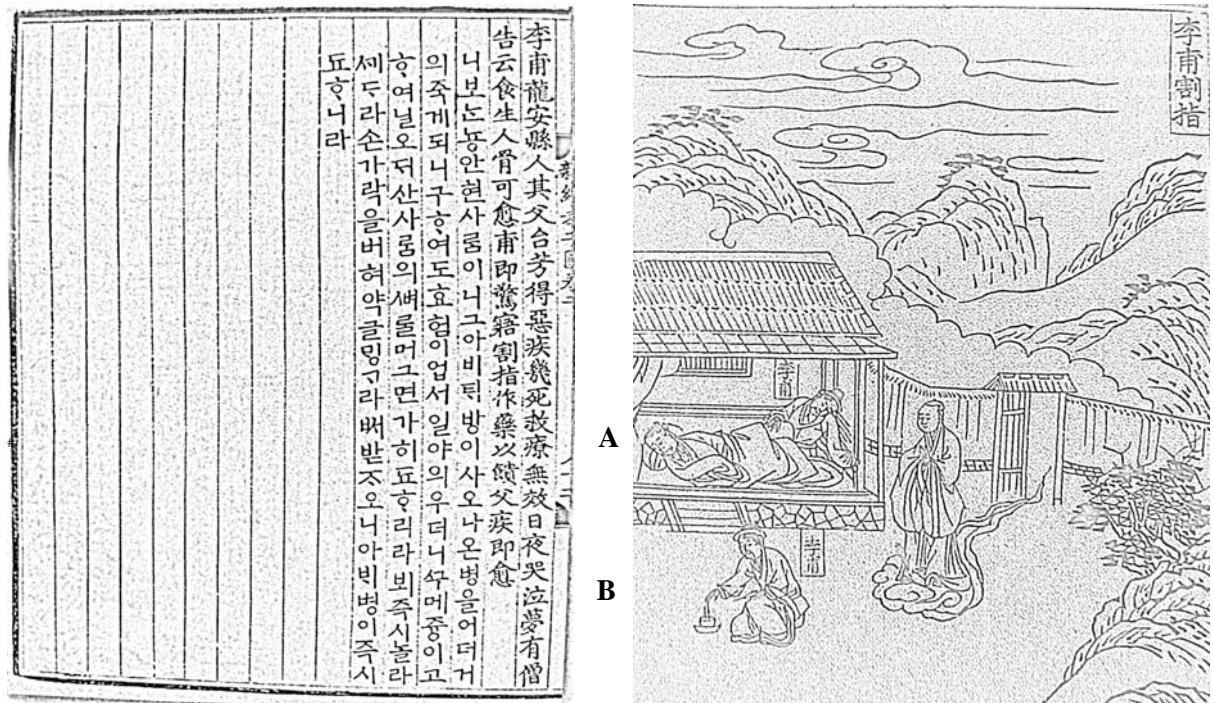 李甫龍安縣人其父台芳得惡疾幾死救療無效日夜哭泣夢有僧
告云食生人骨可愈甫即驚寤割指作藥以饋父疾即愈
니보ᄂᆞᆫ뇽안현사ᄅᆞᆷ이니그아비ᄐᆡ방이사오나온병을어더거
의죽게되니구ᄒᆞ여도효험이업서일야의우더니ᄭᅮ메즁이고
ᄒᆞ여닐오ᄃᆡ산사ᄅᆞᆷ의ᄲᅧᄅᆞᆯ머그면가히됴ᄒᆞ리라뵈즉시놀라
ᄭᆡᄃᆞ라손가락을버혀약글ᄆᆡᆼᄀᆞ라ᄡᅥ받ᄌᆞ오니아비병이즉시
됴ᄒᆞ니라
A
B
李甫割指
李甫
李甫